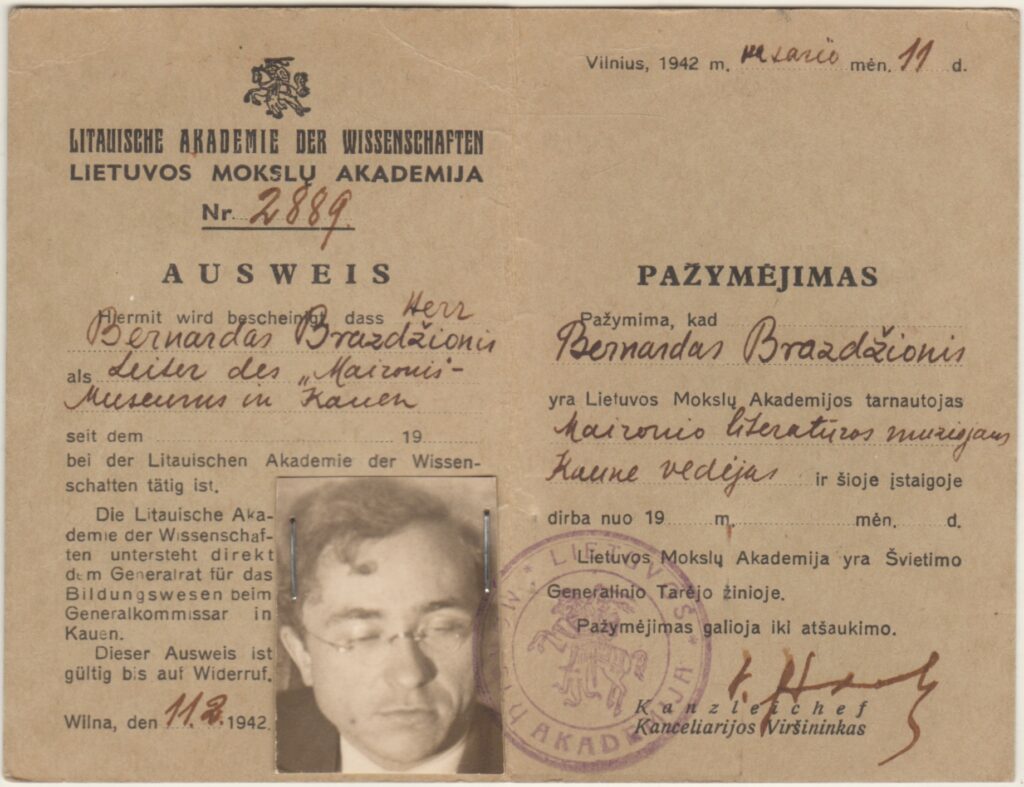 LITAUISCHE AKADEMIE DER WISSENSCHAFTEN
LIETUVOS MOKSLŲ AKADEMIJA
Nr. 2889
AUSWEIS
Hiermit wird bescheinigt, dass Herr
Bernardas Brazdžionis
als Leiter des „Maironis"-
Museums in Kauen
seit dem 19
bei der Litauischen Akademie der Wissen-
schaften tätig ist.
Die Litauische Aka-
demie der Wissenschaf-
ten untersteht direkt
dem Generalrat für das
Bildungswesen beim
Generalkommissar in
Kauen.
Dieser Ausweis ist
gültig bis auf Widerruf.
Wilna, den 11.2. 1942.
Vilnius, 1942 m. vasario mėn. 11 d.
PAŽYMĖJIMAS
Pažymima, kad
Bernardas Brazdžionis
yra Lietuvos Mokslų Akademijos tarnautojas
Maironio literatūros muziejaus
Kaune vedėjas ir šioje įstaigoje
dirba nuo 19 m. mėn. d.
Lietuvos Mokslų Akademija yra Švietimo
Generalinio Tarėjo žinioje.
Pažymėjimas galioja iki atšaukimo.
Kanzleichef
Kanceliarijos Viršininkas
LIETUVOS
AKADEMIJA